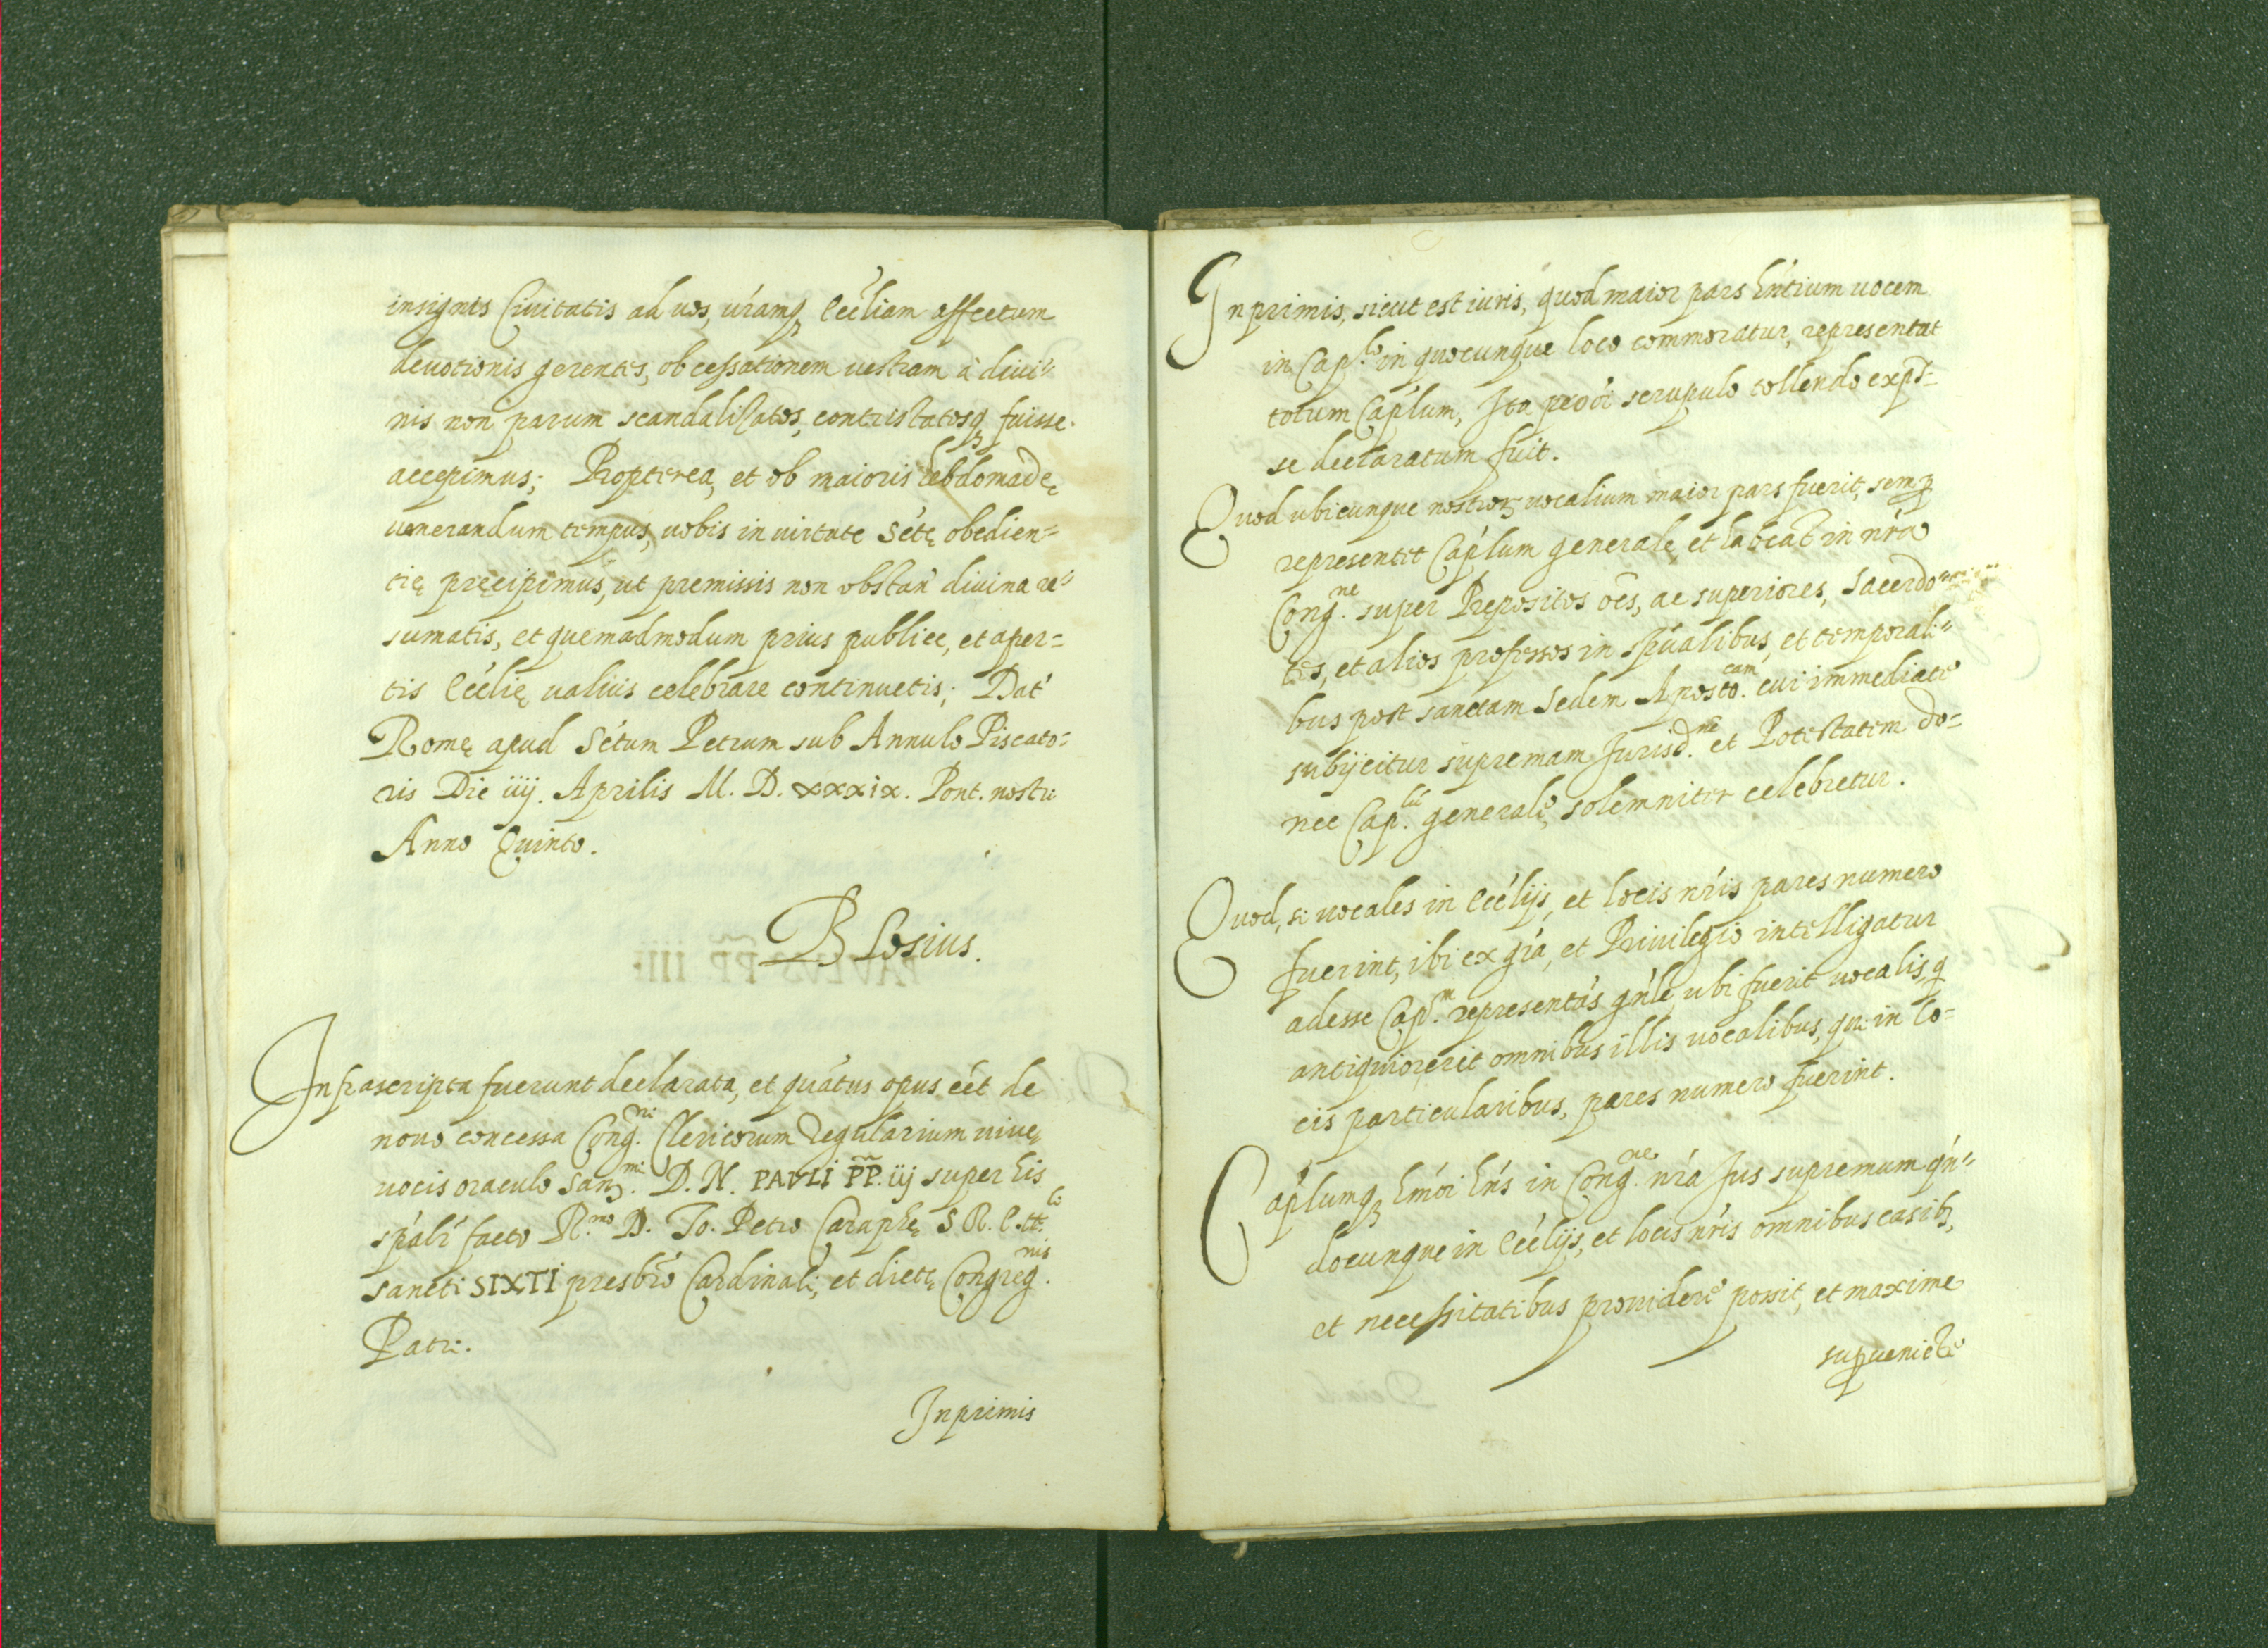 insignis Ciuitatis ad uos, uŕamq; Eccĺiam affectum
deuotionis gerentes, ob cessationem uestram à diui=
nis non parum scandalizatos, contristatosq; fuisse
accepimus; Propterea, et ob maioris hebdomadę
uenerandum tempus, uobis in uirtute Sćtę obedien=
tię pręcipimus, ut premissis non obstań diuina re=
sumatis, et quemadmodum prius publice, et aper=
tis Eccĺię ualuis celebrare continuetis; Dat́
Romę apud Sćtum Petrum sub Annulo Piscato=
ris Die iiij. Aprilis M. D. xxxix. Pont. nostri
Anno Quinto.
Blosius.
Infrascripta fuerunt declarata, et quátus opus eét de
nouo concessa Cong.ni Clericorum Regularium uiuę
uocis oraculo San.mi D. N. PAVLI PP. iij super his
spáli facto R.mo D. Io. Petro Caraphę S R. E. tt.li
sancti SIXTI presbŕo Cardinali, et dictę Congreg.nis
Patri.
Inprimis
Inprimis, sicut est iuris, quod maior pars hńtium uocem
in Cap.lo in quocunque loco commoratur, representat
totum Caṕlum, Ita pro oi scrupulo tollendo exp̃s=
se declaratum fuit.
Quod ubicunque nostroꝝ uocalium maior pars fuerit, semꝑ
representet Caṕlum generale, et habeat in nŕa
Cong.ne super Prepositos oés, ac superiores, Sacerdo=
tes, et alios professos in spúalibus, et temporali=
bus post sanctam Sedem Aposto.cam cui immediate
subijcitur supremam Jurisd.nem et Potestatem do=
nec Cap.lu generale, solemniter celebretur.
Quod, si uocales in Eccĺijs, et locis nŕis pares numero
fuerint, ibi ex gŕa, et Priuilegio intelligatur
adesse Cap.m representás gńle, ubi fuerit uocalis, q
antiquior erit omnibus illis uocalibus, qui in lo=
cis particularibus, pares numero fuerint.
Caṕlumq; hmói hńs in Cong.ne nŕa Jus supremum qń=
documque in Eccĺijs, et locis nŕis omnibus casib;,
et necessitatibus prouidere possit, et maxime
suꝑueniéte